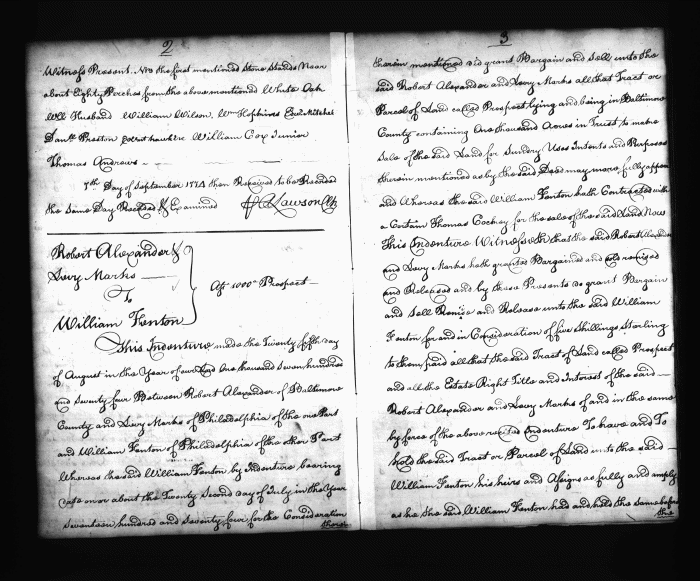 2
Witness Present. NB the first mentioned Stone Stands Near
about Eighty Perches from the above mentioned White Oak
Will Husband William Wilson, Wm Hopkins
Danll Preston William Cox Junior
Thomas Andrews
7th Day of September 1774 then Received to be Recorded
the same Day Recorded & Examined
Robert Alexander &
Levy Marks
To
William Fenton
1000 as Prospect
This Indenture made the Twenty fifth day
of August in the Year of our Lord One thousand seven hundred
and seventy four Between Robert Alexander of Baltimore
County and Levy Marks of Philadelphia of the one Part
and William Fenton of Philadelphia of the other Part
Whereas the said William Fenton by Indenture bearing
date on or about the Twenty Second day of July in the Year
seventeen hundred and seventy four for the Consideration
therein
3
therein mentioned did grant Bargain and Sell unto the
said Robert Alexander and Levy Marks all that Tract or
Parcel of Land called Prospect lying and being in Baltimore
County containing One thousand Acres in Trust to make
Sale of the said Land for Sundry Uses Intents and Purposes
therein mentioned as by the said Deed may more fully appear
and Whereas the said William Fenton hath Contracted with
a Certain Thomas Cockey for the sale of the said Land Now
This Indenture Witnesseth that the said Robert Alexander
and Levy Marks hath granted Bargained and remised
and Released and by these Presents do grant Bargain
and Sell Remise and Release unto the said William
Fenton for and in Consideration of five Shillings Sterling
to them paid all that the said Tract of Land called Prospect
and all the Estate Right Title and Interest of the said
Robert Alexander and Levy Marks of and in the same
by force of the above recited Indenture To have and To
hold the said Tract or Parcel of Land unto the said
William Fenton his heirs and Assigns as fully and amply
as he the said William Fenton had and held the same before
the